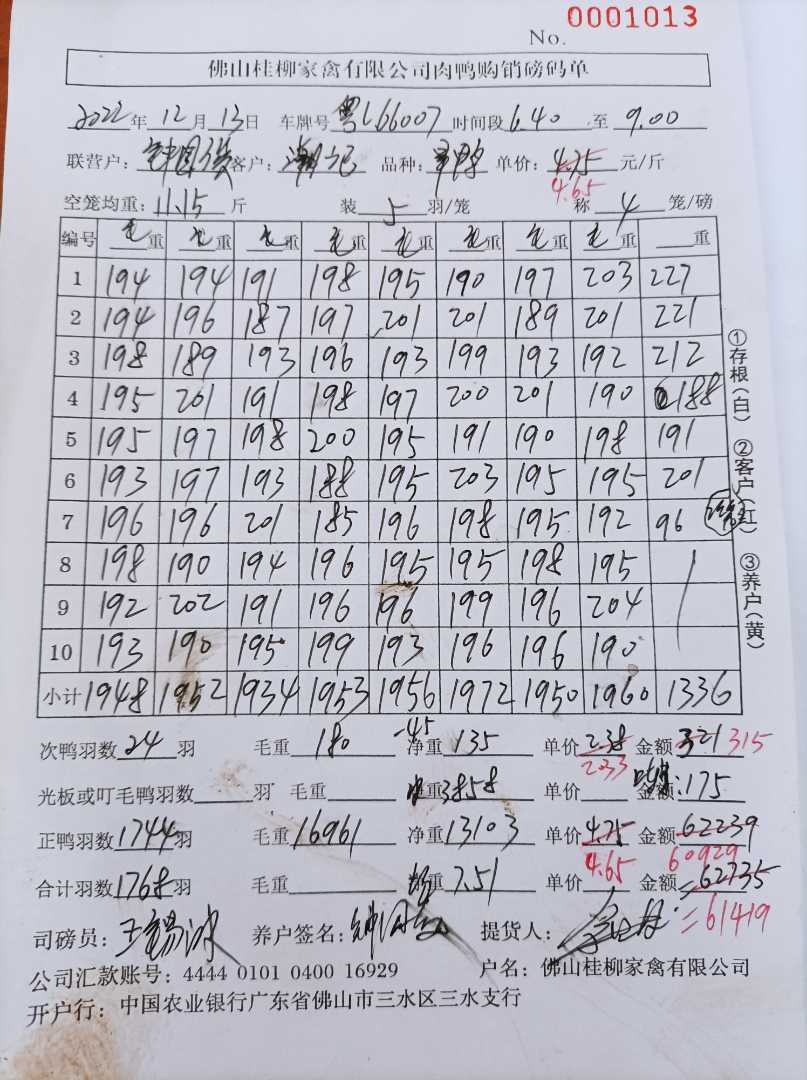 No. 0001013
佛山桂柳家禽有限公司肉鸭购销磅码单
2022年12月13日 车牌号粤L66007时间段6.40至9.00
联营户: 客户:潮记 品种: 单价:4.75元/斤
4.65
空笼均重:11.15斤 装5羽/笼 称4笼/磅
编号 毛重 毛重 毛重 毛重 毛重 毛重 毛重 毛重 重
1 194 194 191 198 195 190 197 203 227
2 194 196 187 197 201 201 189 201 221
3 198 189 193 196 193 199 193 192 212
4 195 201 191 198 197 200 201 190 188
5 195 197 198 200 195 191 190 198 191
6 193 197 193 188 195 203 195 195 201
7 196 196 201 185 196 198 195 192 96
8 198 190 194 196 195 195 198 195
9 192 202 191 196 196 199 196 204
10 193 190 195 199 193 196 196 190
小计 1948 1952 1934 1953 1956 1972 1950 1960 1336
①存根(白) ②客户(红) ③养户(黄)
次鸭羽数24羽 毛重180 -45 净重135 单价2.38 金额321 315
2.33
光板或叮毛鸭羽数 羽 毛重 净重3858 单价 金额:175
正鸭羽数1744羽 毛重16961 净重13103 单价4.75 金额62239
4.65 60929
合计羽数1768羽 毛重 均重7.51 单价 金额=62735
=61419
司磅员:王锡冰 养户签名: 提货人:
公司汇款账号:4444 0101 0400 16929 户名:佛山桂柳家禽有限公司
开户行:中国农业银行广东省佛山市三水区三水支行